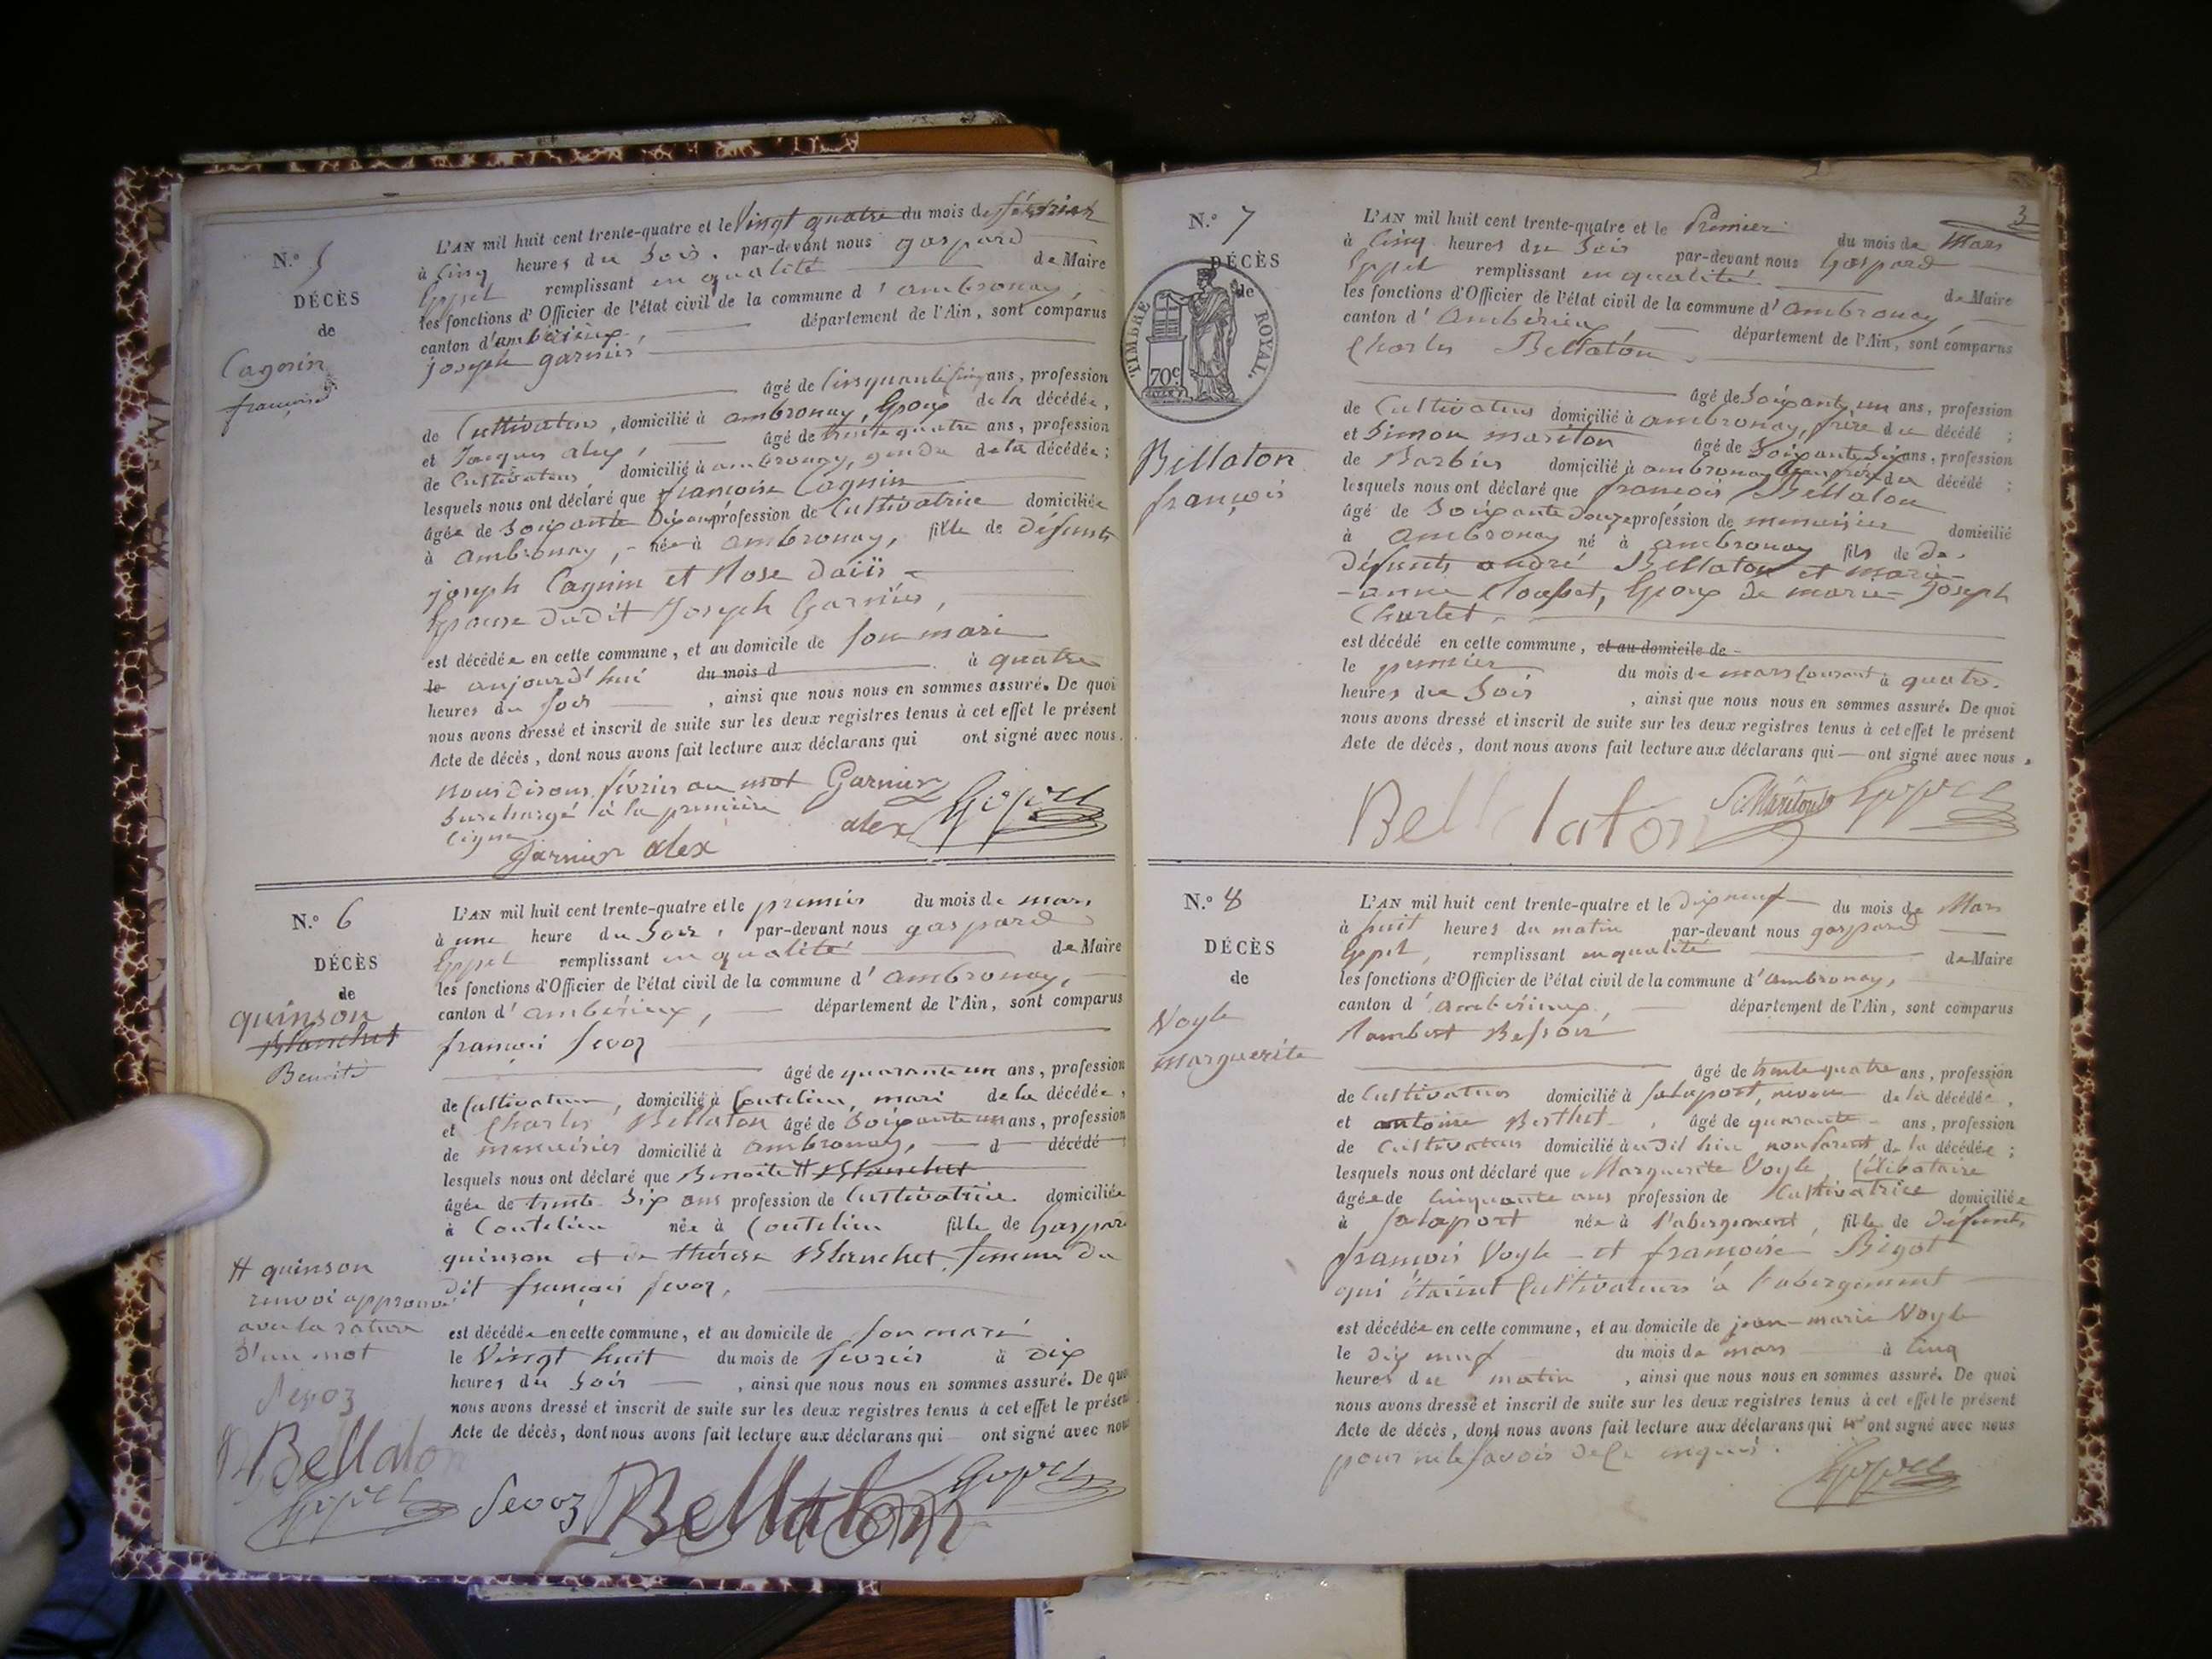 N.° 5
DÉCÈS
de
Cagnin
françoise
L'AN mil huit cent trente-quatre et le Vingt quatre du mois de février
à Cinq heures du Soir, par-devant nous gaspard
remplissant en qualité de Maire
les fonctions d'Officier de l'état civil de la commune d'ambronay,
canton d'ambérieux, département de l'Ain, sont comparus
joseph garnier
âgé de Cinquante Cinq ans, profession
de Cultivateur, domicilié à ambronay, Epoux de la décédée,
et Jacques alex, âgé de trente quatre ans, profession
de Cultivateur, domicilié à ambronay, gendre de la décédée;
lesquels nous ont déclaré que françoise Cagnin
âgée de Soixante Dix ans profession de Cultivatrice domiciliée
à ambronay, née à ambronay, fille de défunts
joseph Cagnin et Rose
Epouse dudit Joseph Garnier,
est décédée en cette commune, et au domicile de Son mari
le aujourd'hui du mois d à quatre
heures du Soir, ainsi que nous nous en sommes assuré. De quoi
nous avons dressé et inscrit de suite sur les deux registres tenus à cet effet le présent
Acte de décès, dont nous avons fait lecture aux déclarans qui ont signé avec nous.
nous disons février au mot Garnier
Surchargé à la première alex
ligne
Garnier alex
N.° 6
DÉCÈS
de
quinson
Blanchet
Benoite
L'AN mil huit cent trente-quatre et le premier du mois de mars
à une heure du Soir, par-devant nous gaspard
remplissant en qualité de Maire
les fonctions d'Officier de l'état civil de la commune d'ambronay,
canton d'ambérieux, département de l'Ain, sont comparus
françois Sevoz
âgé de quarante un ans, profession
de Cultivateur, domicilié à Coutelieu, mari de la décédée,
et Charles Bellaton âgé de Soixante un ans, profession
de menuisier domicilié à ambronay, d décédé;
lesquels nous ont déclaré que Benoite # Blanchet
âgée de trente Six ans profession de Cultivatrice domiciliée
à Coutelieu née à Coutelieu fille de Gaspard
quinson et de thérèse Blanchet, femme du
dit françois Sevoz,
# quinson
renvoi approuvé
avec la rature
d'un mot
Sevoz
Bellaton
est décédée en cette commune, et au domicile de Son mari
le Vingt huit du mois de février à Dix
heures du Soir, ainsi que nous nous en sommes assuré. De quoi
nous avons dressé et inscrit de suite sur les deux registres tenus à cet effet le présent
Acte de décès, dont nous avons fait lecture aux déclarans qui ont signé avec nous
Sevoz Bellaton
3
N.° 7
DÉCÈS
de
TIMBRE ROYAL.
70c
Bellaton
françois
L'AN mil huit cent trente-quatre et le Premier du mois de Mars
à Cinq heures du Soir par-devant nous Gaspard
remplissant en qualité de Maire
les fonctions d'Officier de l'état civil de la commune d'ambronay,
canton d'Ambérieux, département de l'Ain, sont comparus
Charles Bellaton
âgé de Soixante un ans, profession
de Cultivateur domicilié à ambronay, frère du décédé;
et Simon mariton âgé de Soixante Six ans, profession
de Barbier domicilié à ambronay Beau frère du décédé;
lesquels nous ont déclaré que françois Bellaton
âgé de Soixante douze profession de menuisier domicilié
à Ambronay né à ambronay fils de de.
Défunts andré Bellaton et marie
-anne, Epoux de marie-Joseph
Charlet.
est décédé en cette commune, et au domicile de
le premier du mois de mars Courant à quatre.
heures du Soir, ainsi que nous nous en sommes assuré. De quoi
nous avons dressé et inscrit de suite sur les deux registres tenus à cet effet le présent
Acte de décès, dont nous avons fait lecture aux déclarans qui ont signé avec nous.
Bellaton S. Mariton
N.° 8
DÉCÈS
de
Voyle
marguerite
L'AN mil huit cent trente-quatre et le Dix neuf du mois de Mars
à huit heures du matin par-devant nous gaspard
remplissant en qualité de Maire
les fonctions d'Officier de l'état civil de la commune d'ambronay,
canton d'ambérieux, département de l'Ain, sont comparus
Lambert
âgé de trente quatre ans, profession
de Cultivateur domicilié à, neveu de la décédée,
et antoine Berthet, âgé de quarante ans, profession
de Cultivateur domicilié audit lieu non parent de la décédée;
lesquels nous ont déclaré que Marguerite Voyle, Célibataire
âgée de Cinquante ans profession de Cultivatrice domiciliée
à née à l'abergement, fille de défunts
françois Voyle et françoise Bigot
qui étaient Cultivateurs à l'abergement
est décédée en cette commune, et au domicile de jean-marie Voyle
le Dix neuf du mois de mars à Cinq
heures du matin, ainsi que nous nous en sommes assuré. De quoi
nous avons dressé et inscrit de suite sur les deux registres tenus à cet effet le présent
Acte de décès, dont nous avons fait lecture aux déclarans qui n'ont signé avec nous
pour ne le Savoir de ce enquis.